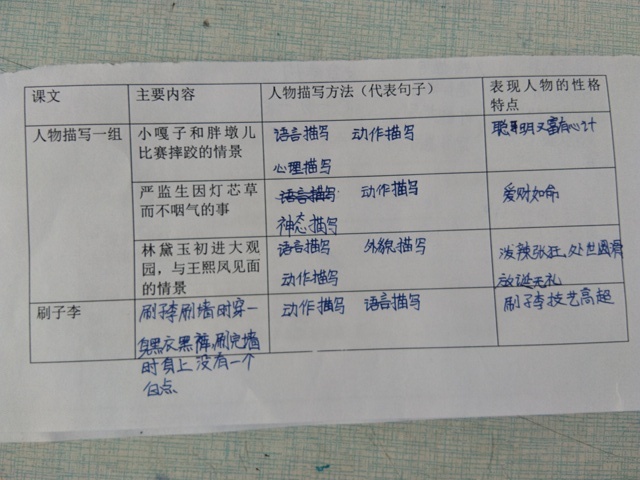 课文 主要内容 人物描写方法（代表句子） 表现人物的性格
特点
人物描写一组 小嘎子和胖墩儿 语言描写 动作描写 聪明又富有心计
比赛摔跤的情景 心理描写
严监生因灯芯草 语言描写 动作描写 爱财如命
而不咽气的事 神态描写
林黛玉初进大观 语言描写 外貌描写 泼辣张狂，处世圆滑
园，与王熙凤见面 动作描写 放诞无礼
的情景
刷子李 刷子李刷墙时穿一 动作描写 语言描写 刷子李技艺高超
身黑衣黑裤，刷完墙
时身上没有一个
白点